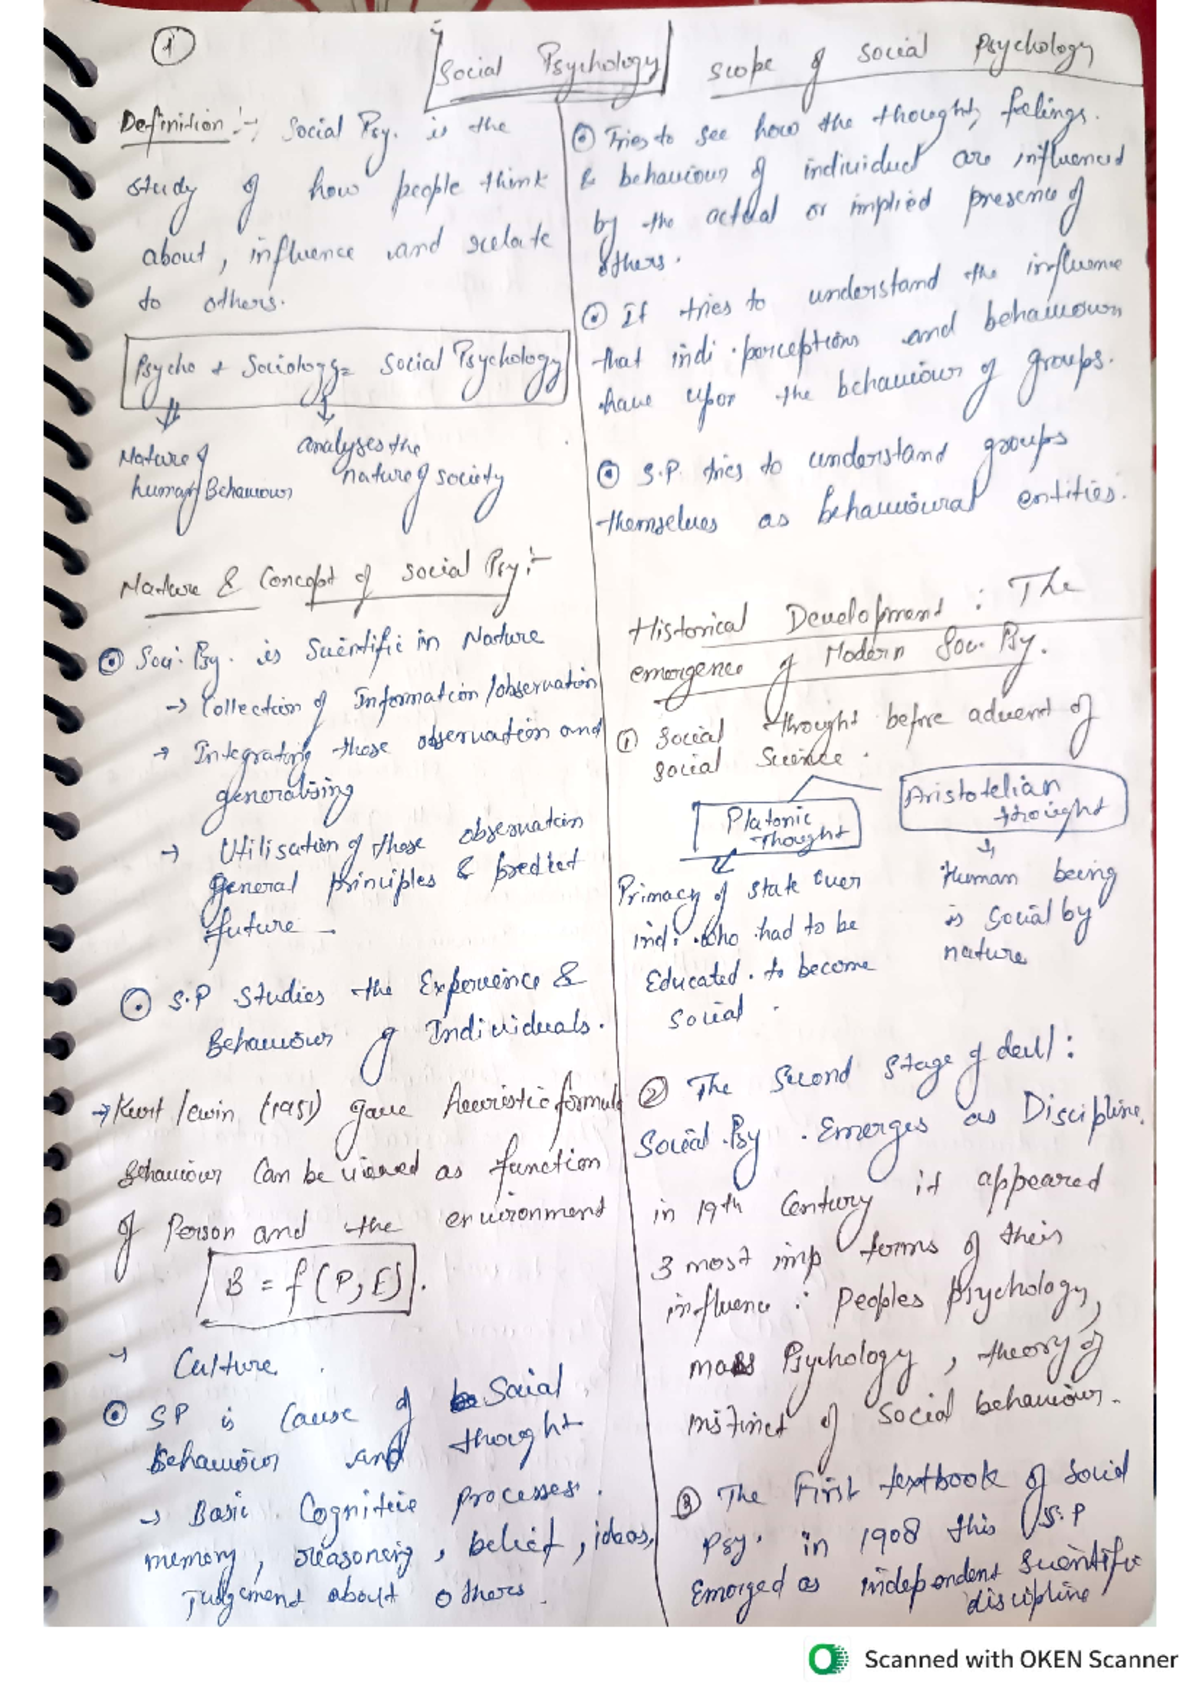 1
Social Psychology
Definition :- Social Psy. is the
study of how people think
about, influence and relate
to others.
Psycho + Sociology = Social Psychology
Nature of
human Behaviour
analyses the
nature of society
Nature & Concept of Social Psy :-
Soci. Psy. is Scientific in Nature
→ Collection of Information/observation
→ Integrating those observation and
generalising
→ Utilisation of those observation
general principles & predict
future
S.P Studies the Experience &
Behaviour of Individuals.
→ Kurt Lewin (1951) gave heuristic formula
Behaviour Can be viewed as function
of Person and the environment
B = f (P, E).
→ Culture.
SP is Cause of Social
Behaviour and thought
→ Basic Cognitive processes.
memory, reasoning, belief, ideas,
Judgement about others.
scope of social Psychology
Tries to see how the thought, feelings.
& behaviour of individual are influenced
by the actual or implied presence of
others.
It tries to understand the influence
that indi. perceptions and behaviour
have upon the behaviour of groups.
S.P. tries to understand groups
themselves as behavioural entities.
Historical Development : The
emergence of Modern Soc. Psy.
1 Social thought before advent of
Social Science.
Platonic
Thought
Aristotelian
thought
Primacy of state over
indi. who had to be
Educated. to become
Social.
Human being
is Social by
nature
2 The Second Stage of devl :
Social Psy. Emerges as Discipline.
in 19th Century it appeared
3 most imp forms of their
influence : Peoples Psychology,
mass Psychology, theory of
instinct of Social behaviour.
3 The First textbook of Social
Psy. in 1908 this S.P
Emerged as independent Scientific
discipline
Scanned with OKEN Scanner